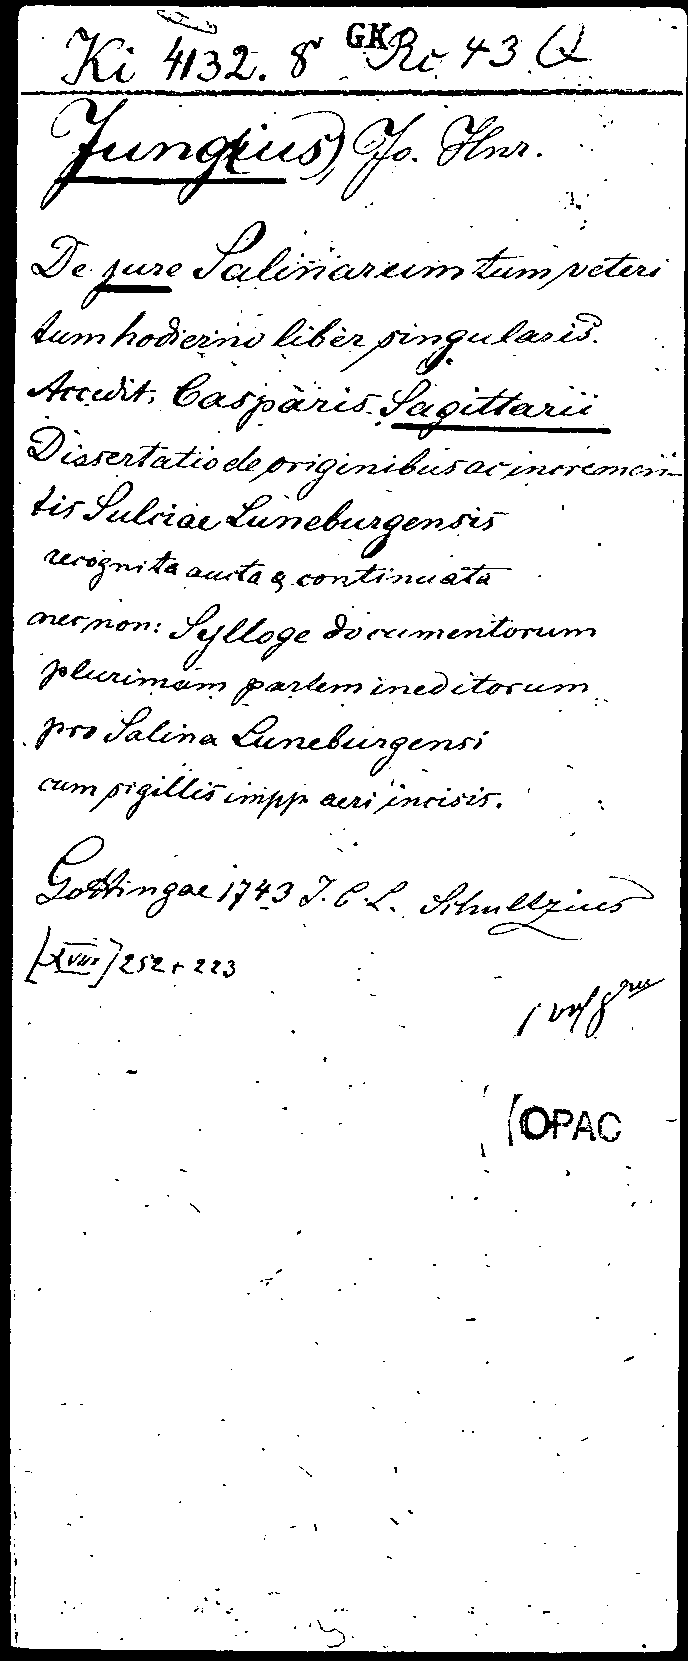 Ki 4132. 8° GK Rc 43 Q
Jung(ius), Jo. Hnr.
De jure Salinarum tum veteri
tum hodierno liber singularis.
Accedit. Casparis Sagittarii
Dissertatio de originibus ac incremen-
tis Sulciae Luneburgensis
recognita aucta & continuata
nec non: Sylloge documentorum
plurimam partem ineditorum
pro Salina Luneburgensi
cum sigillis impp aeri incisis.
Gottingae 1743 J. C. L. Schultzius
[XVIII] 252 + 223
1 vol
(OPAC